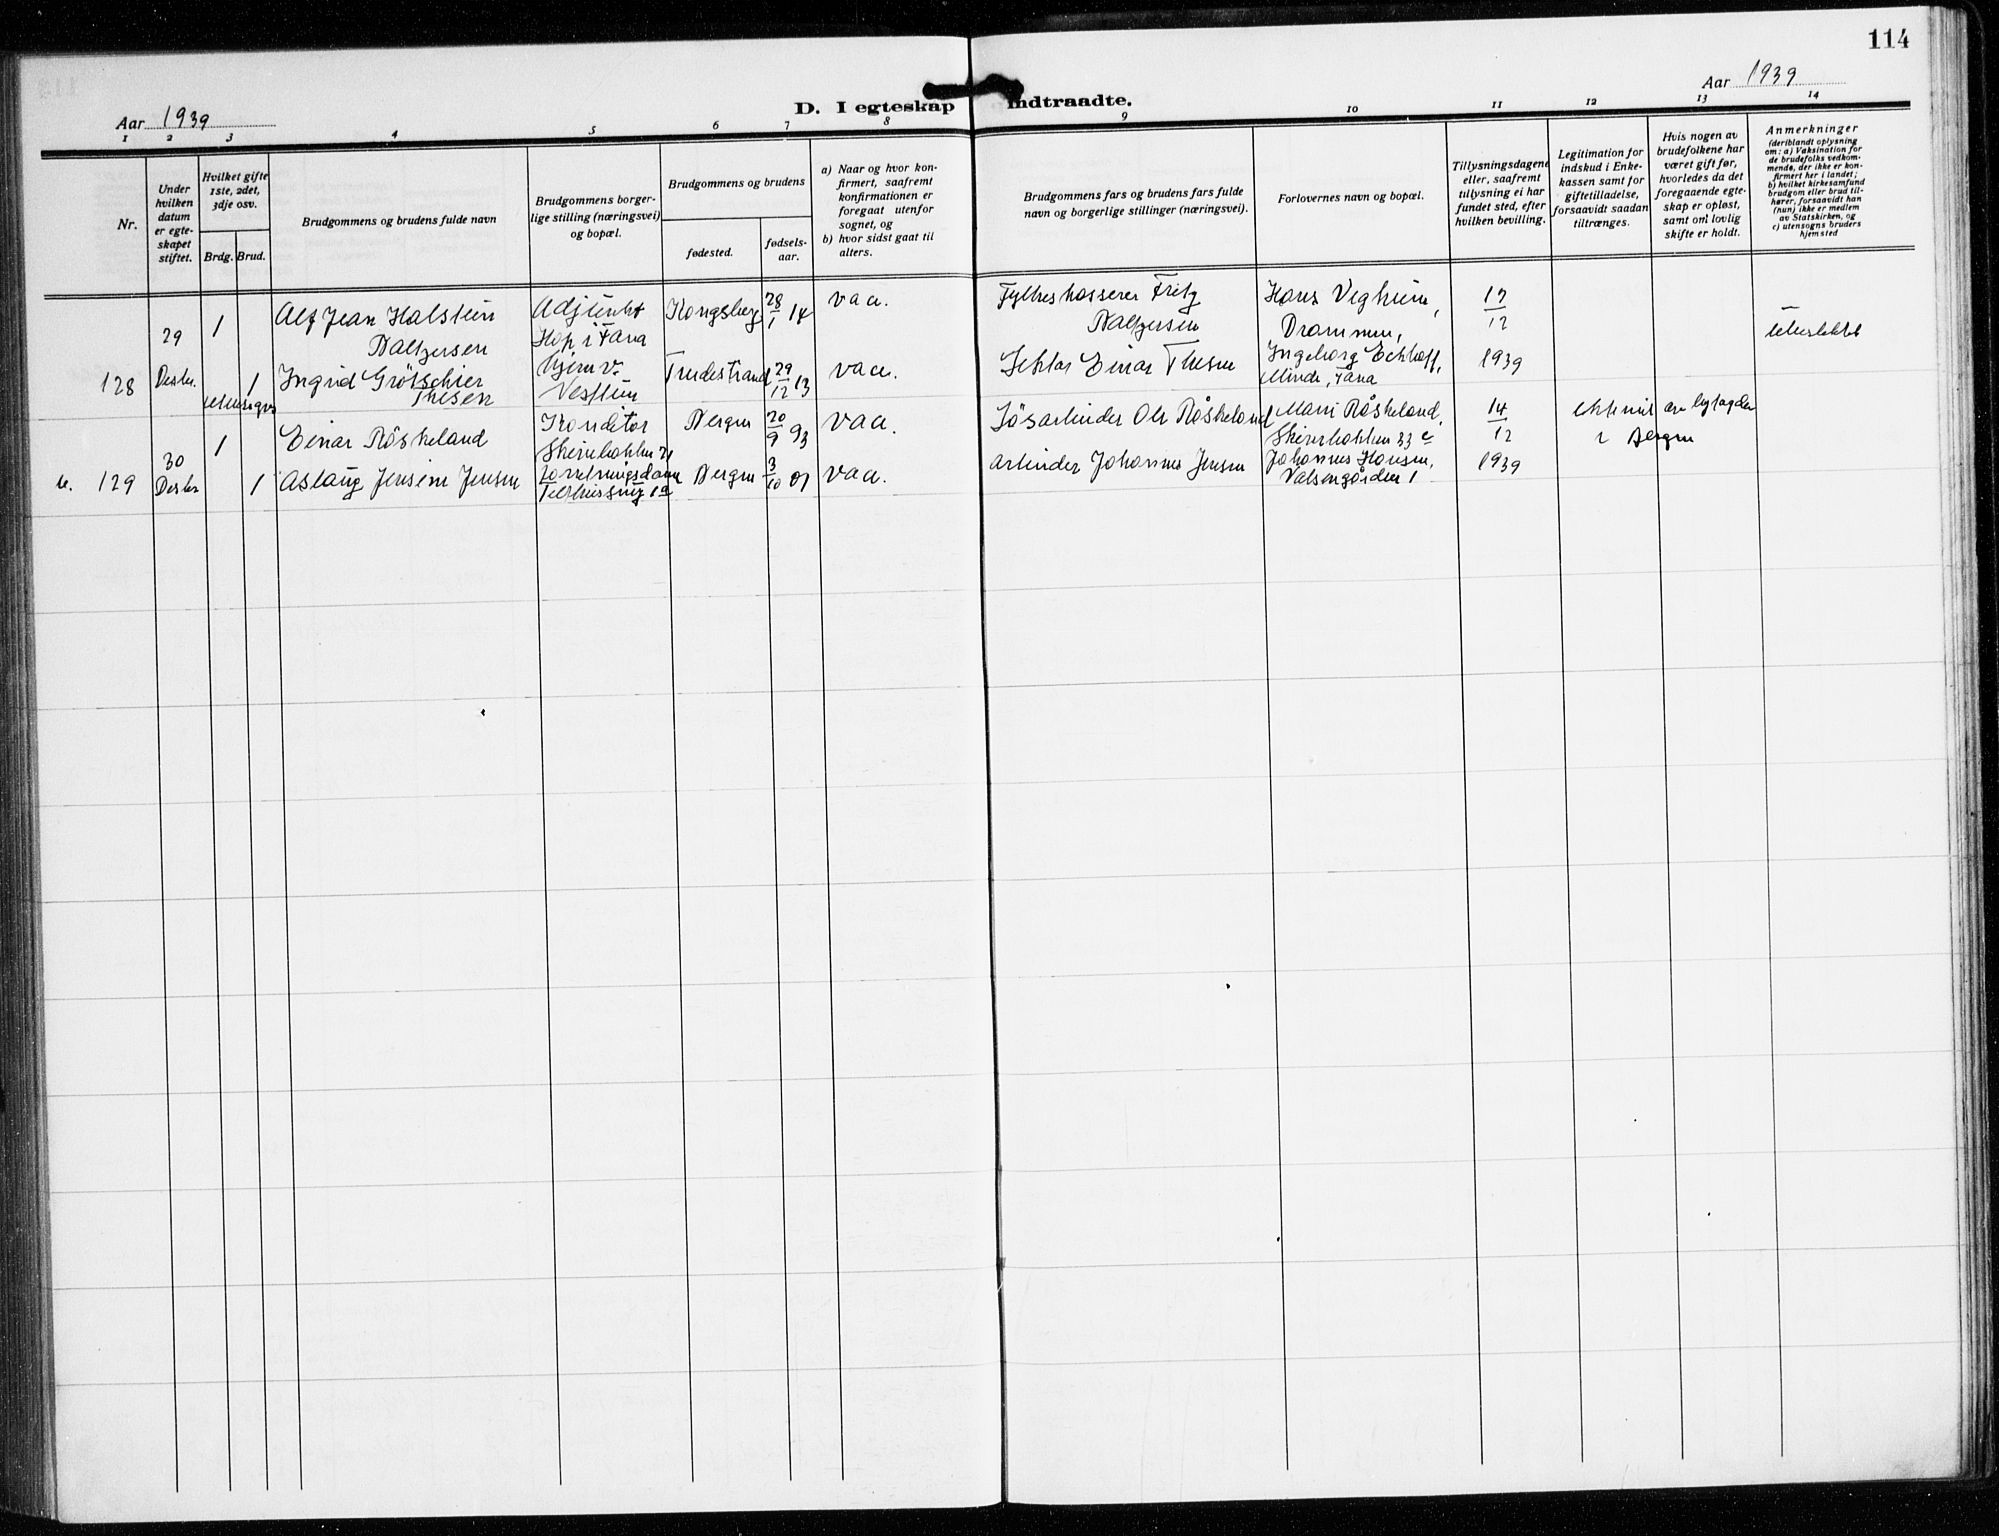 114
Aar 1939
D. I egteskap indtraadte.
Aar 1939
1 2 3 4 5 6 7 8 9 10 11 12 13 14
Nr.
Under
hvilken
datum
er egte-
skapet
stiftet.
Hvilket gifte
1ste, 2det,
3dje osv.
Brdg. Brud.
Brudgommens og brudens fulde navn
Brudgommens borger-
lige stilling (næringsvei)
og bopæl.
Brudgommens og brudens
fødested.
fødsels-
aar.
a) Naar og hvor kon-
firmert, saafremt
konfirmationen er
foregaat utenfor
sognet, og
b) hvor sidst gaat til
alters.
Brudgommens fars og brudens fars fulde
navn og borgerlige stillinger (næringsvei).
Forlovernes navn og bopæl.
Tillysningsdagene
eller, saafremt
tillysning ei har
fundet sted, efter
hvilken bevilling.
Legitimation for
indskud i Enke-
kassen samt for
giftetilladelse,
forsaavidt saadan
tiltrænges.
Hvis nogen av
brudefolkene har
været gift før,
hvorledes da det
foregaaende egte-
skap er opløst,
samt om lovlig
skifte er holdt.
Anmerkninger
(deriblandt oplysning
om: a) Vaksination for
de brudefolks vedkom-
mende, der ikke er kon-
firmert her i landet;
b) hvilket kirkesamfund
brudgom eller brud til-
hører, forsaavidt han
(hun) ikke er medlem
av Statskirken, og
c) utensogns bruders
hjemsted
128
29
Desbr.
1
Alf Jean Halstein
Baltzersen
Adjunkt
Hop i Fana
Kongsberg
28/1 14
vaa.
Fylkeskasserer Fritz
Baltzersen
Hans Vegheim,
Drammen,
17/12
1939
1
Ingrid Grötschier
Thesen
Hjem v.
29/12 13
vaa.
Lektor Einar Thesen
Ingeborg Eckhoff,
Minde, Fana
129
30
Desbr
1
Einar Röskeland
Konditor
Bergen
20/9 93
vaa.
Ole Röskeland
Röskeland,
14/12
1939
Bergen
1
Aslaug Jensine Jensen
Bergen
3/10 01
vaa.
Arbeider Johannes Jensen
Johannes Hansen,